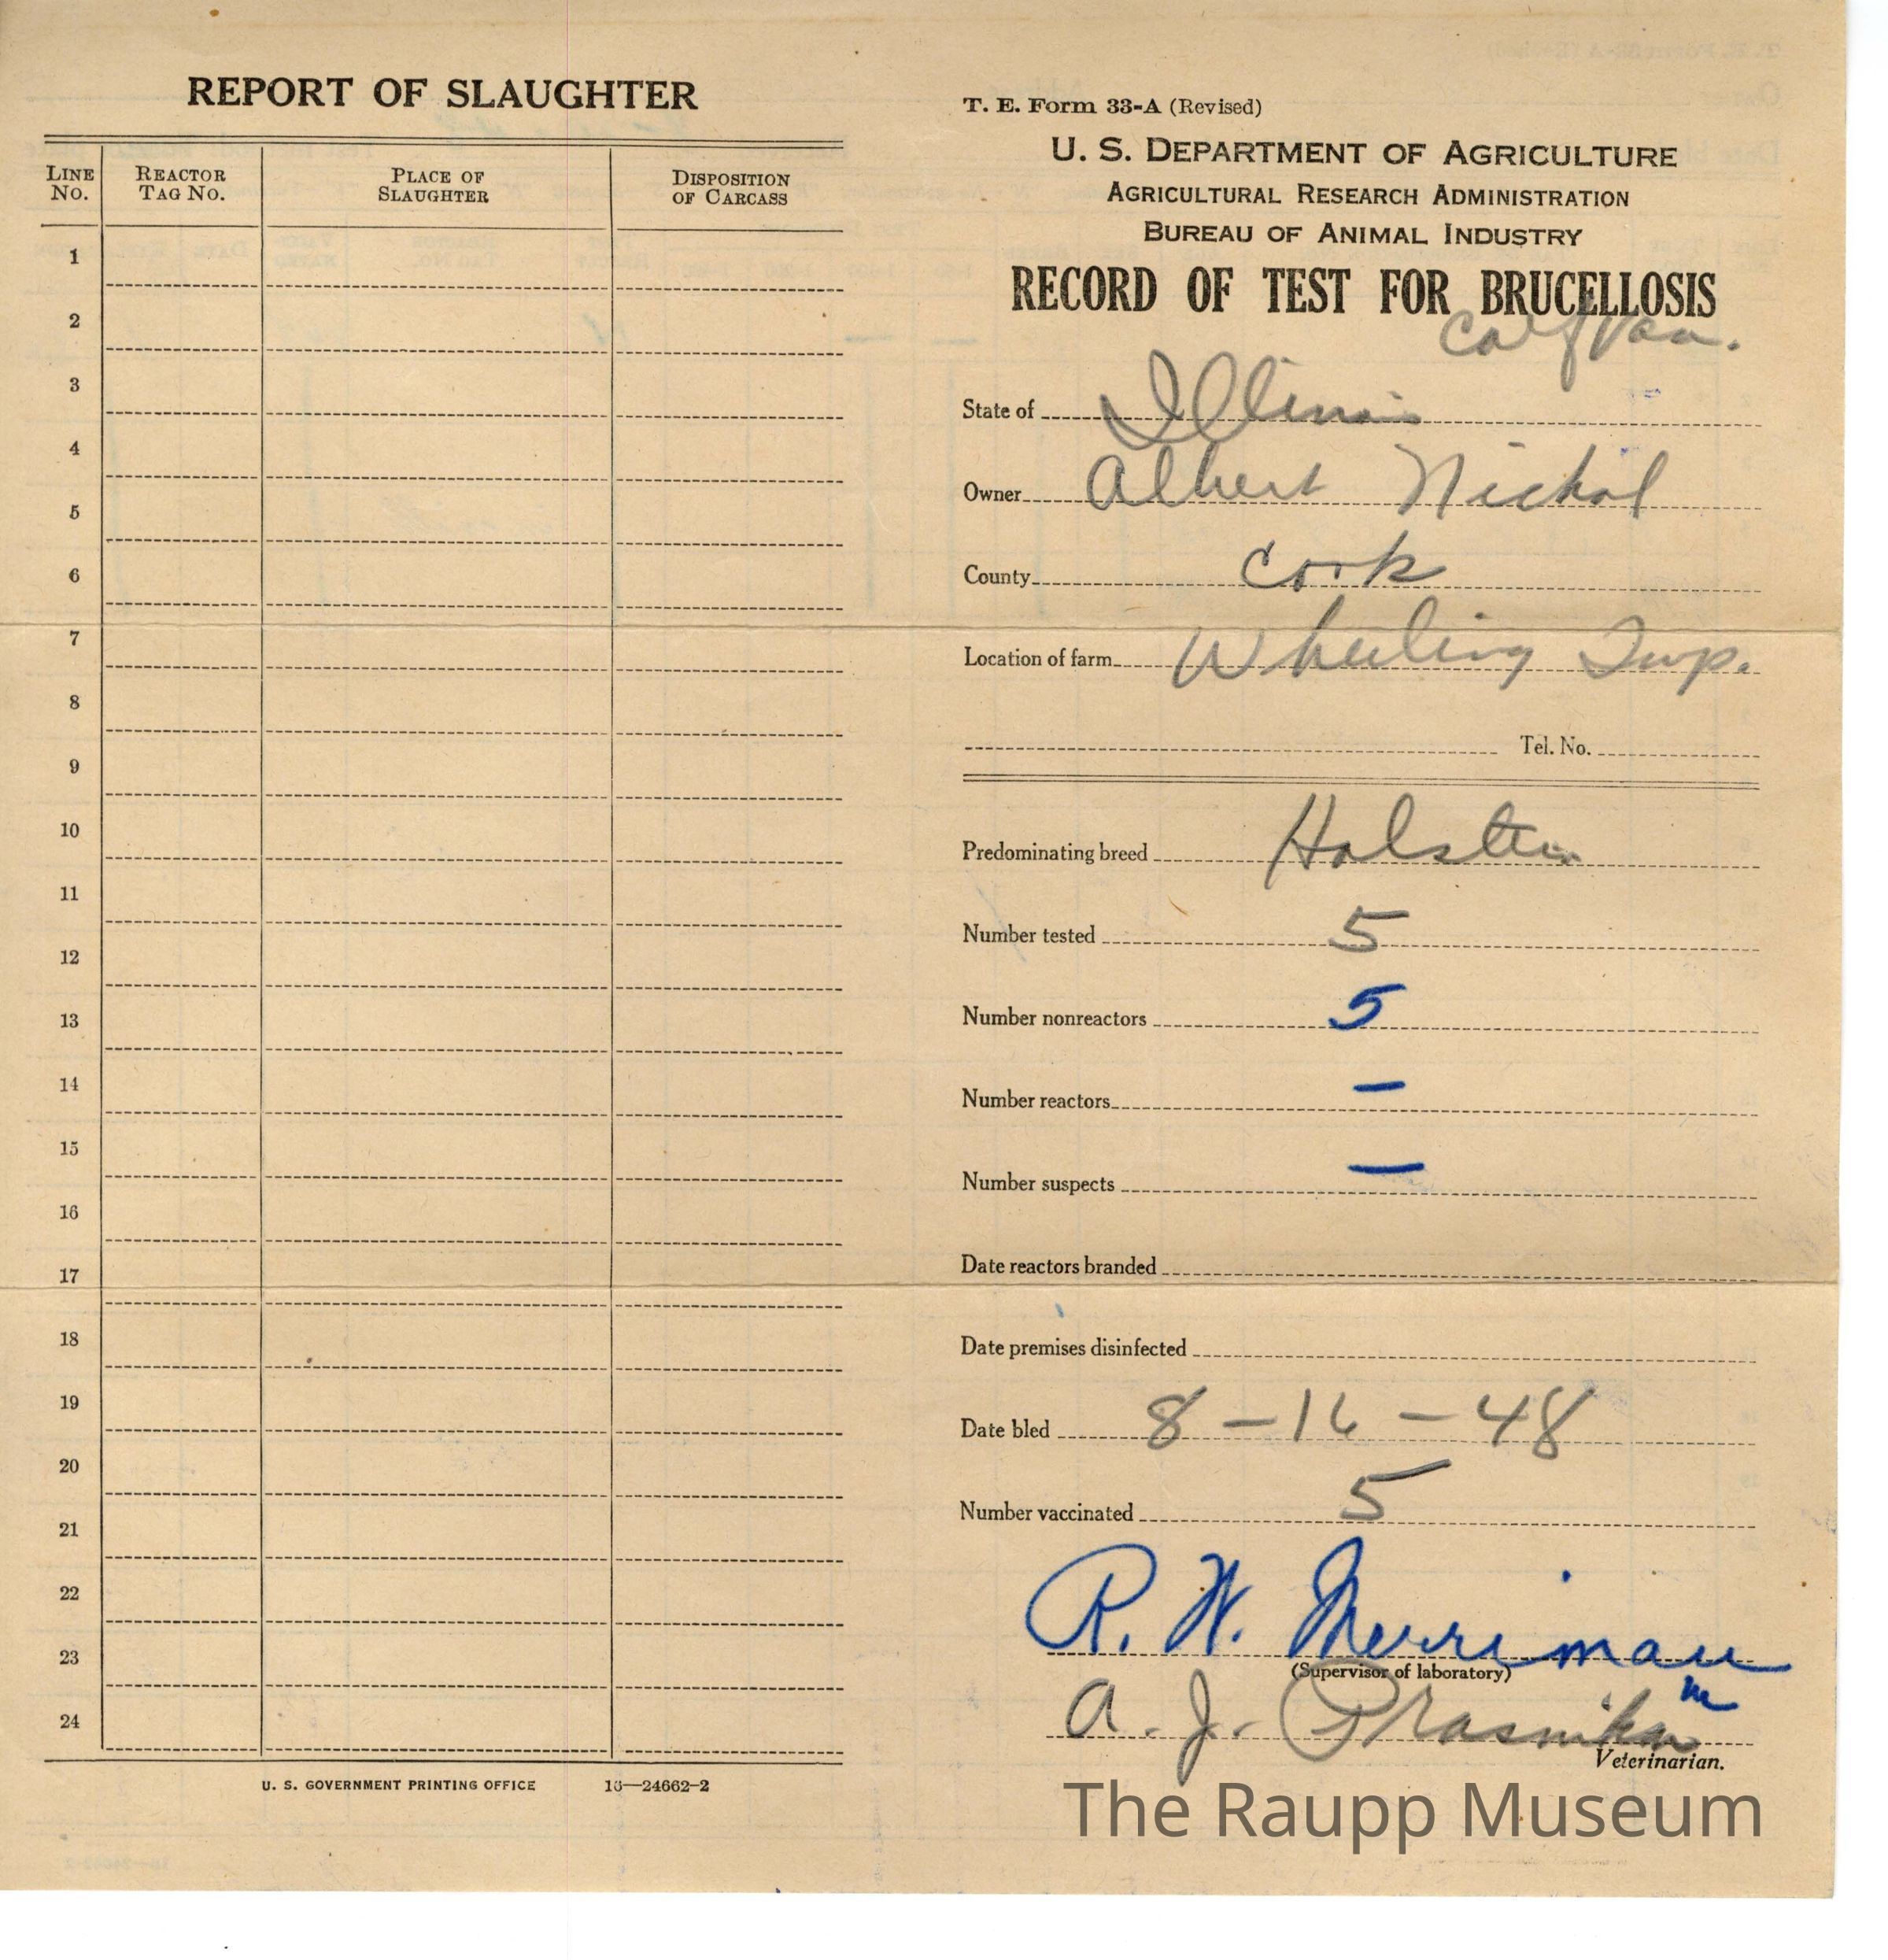 REPORT OF SLAUGHTER
LINE NO. REACTOR TAG NO. PLACE OF SLAUGHTER DISPOSITION OF CARCASS
1
2
3
4
5
6
7
8
9
10
11
12
13
14
15
16
17
18
19
20
21
22
23
24
U. S. GOVERNMENT PRINTING OFFICE 16—24662-2
T. E. Form 33-A (Revised)
U. S. DEPARTMENT OF AGRICULTURE
AGRICULTURAL RESEARCH ADMINISTRATION
BUREAU OF ANIMAL INDUSTRY
RECORD OF TEST FOR BRUCELLOSIS
Calf Vac.
State of Illinois
Owner Albert Nichol
County Cook
Location of farm Wheeling Twp.
Tel. No.
Predominating breed Holstein
Number tested 5
Number nonreactors 5
Number reactors —
Number suspects —
Date reactors branded
Date premises disinfected
Date bled 8-16-48
Number vaccinated 5
R. W. Merriman
(Supervisor of laboratory)
m
A. J.
Veterinarian.
The Raupp Museum